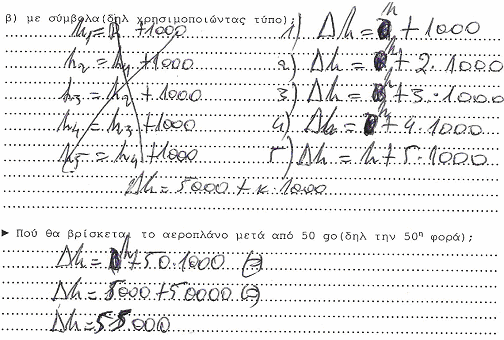 β) με σύμβολα(δηλ χρησιμοποιώντας τύπο);
h₁ = h +1000
h₂ = h₁ +1000
h₃ = h₂ +1000
h₄ = h₃ +1000
h5 = h₄ +1000
1) Δh = h + 1000
2) Δh = h + 2·1000
3) Δh = h + 3·1000
4) Δh = h + 4·1000
5) Δh = h + 5·1000
Δh = 5000 + κ·1000
► Πού θα βρίσκεται το αεροπλάνο μετά από 50 go(δηλ την 50η φορά);
Δh = h + 50·1000 (=)
Δh = 5000 + 50000 (=)
Δh = 55.000